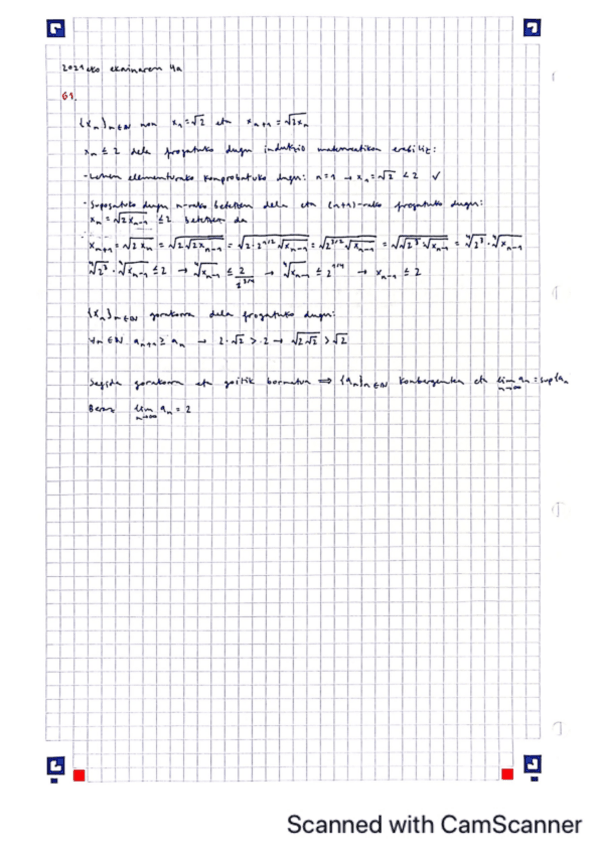 2021eko ekainaren 4a
G1.
{xₙ}ₙ∈ℕ non x₁=√2 eta xₙ₊₁=√(2xₙ)
xₙ ≤ 2 dela frogatuko dugu indukzio matematikoa erabiliz:
-Lehen elementurako konprobatuko dugu: n=1 → x₁=√2 ≤2 ✓
-Suposatuko dugu n-rako betetzen dela eta (n+1)-rako frogatuko dugu:
xₙ=√(2xₙ₋₁) ≤2 betetzen da
xₙ₊₁=√(2xₙ) = √(2√(2xₙ₋₁)) = √(2·2^(1/2)√(xₙ₋₁)) = √(2^(3/2)√(xₙ₋₁)) = √(√(2³)√(xₙ₋₁)) = ⁴√(2³)·⁴√(xₙ₋₁)
⁴√(2³)·⁴√(xₙ₋₁) ≤2 → ⁴√(xₙ₋₁) ≤ 2/2^(3/4) → ⁴√(xₙ₋₁) ≤ 2^(1/4) → xₙ₋₁ ≤ 2
{xₙ}ₙ∈ℕ gorakorra dela frogatuko dugu:
∀n∈ℕ aₙ₊₁≥aₙ → 2·√2 > 2 → √(2√2) > √2
Segida gorakorra eta goitik bornatua ⟹ {aₙ}ₙ∈ℕ konbergentea eta lim n→∞ aₙ = sup{aₙ
Beraz lim n→∞ aₙ = 2
Scanned with CamScanner